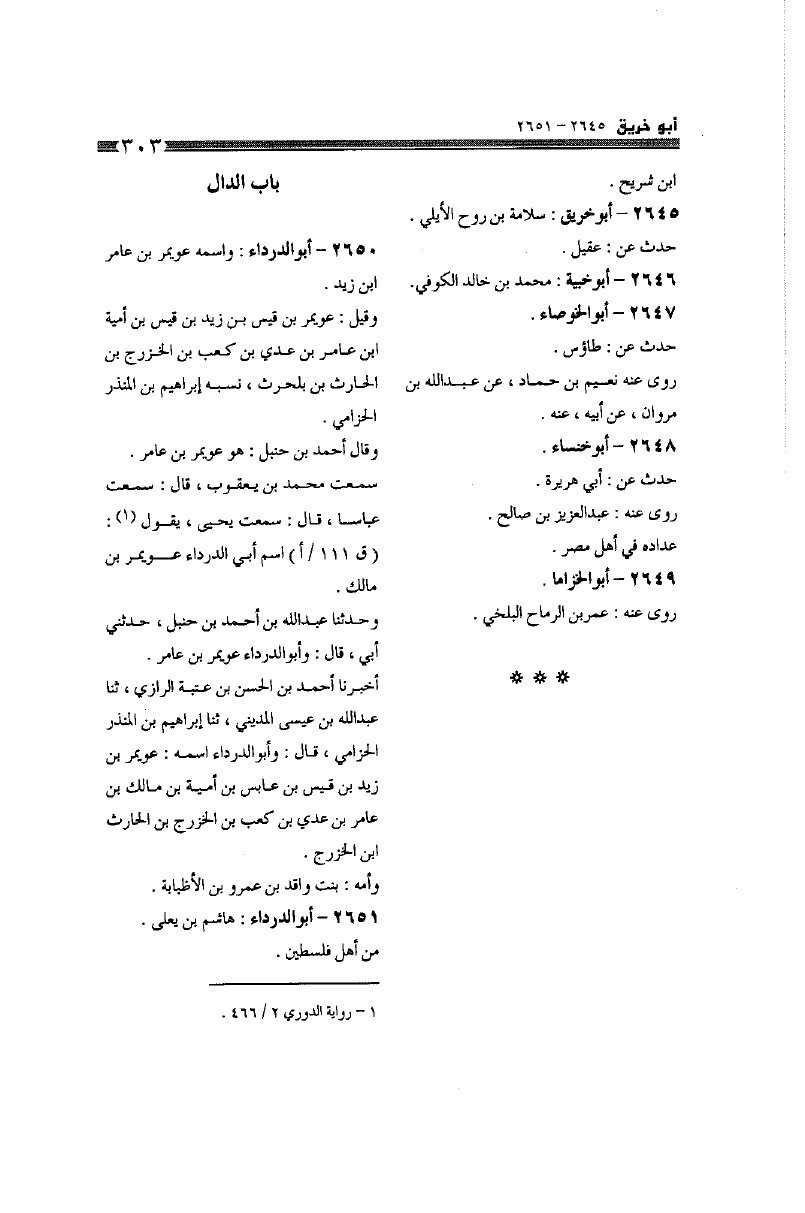 أبو خريق ٢٦٤٥ - ٢٦٥١
٣٠٣
ابن شريح .
٢٦٤٥ - أبوخريق : سلامة بن روح الأيلي .
حدث عن : عقيل .
٢٦٤٦ - أبوخبية : محمد بن خالد الكوفي.
٢٦٤٧ - أبوالخوصاء .
حدث عن : طاؤس .
روى عنه نعيم بن حماد ، عن عبدالله بن
مروان ، عن أبيه ، عنه .
٢٦٤٨ - أبوخنساء .
حدث عن : أبي هريرة .
روى عنه : عبدالعزيز بن صالح .
عداده في أهل مصر .
٢٦٤٩ - أبوالخزاما .
روى عنه : عمربن الرماح البلخي .
* * *
باب الدال
٢٦٥٠ - أبوالدرداء : واسمه عويمر بن عامر
ابن زيد .
وقيل : عويمر بن قيس بن زيد بن قيس بن أمية
ابن عامر بن عدي بن كعب بن الخزرج بن
الحارث بن بلحرث ، نسبه إبراهيم بن المنذر
الحزامي .
وقال أحمد بن حنبل : هو عويمر بن عامر .
سمعت محمد بن يعقوب ، قال : سمعت
عباسا ، قال : سمعت يحيى ، يقول (١) :
( ق ١١١ / أ ) اسم أبي الدرداء عويمر بن
مالك .
وحدثنا عبدالله بن أحمد بن حنبل ، حدثني
أبي ، قال : وأبوالدرداء عويمر بن عامر .
أخبرنا أحمد بن الحسن بن عتبة الرازي ، ثنا
عبدالله بن عيسى المديني ، ثنا إبراهيم بن المنذر
الحزامي ، قال : وأبوالدرداء اسمه : عويمر بن
زيد بن قيس بن عابس بن أمية بن مالك بن
عامر بن عدي بن كعب بن الخزرج بن الحارث
ابن الخزرج .
وأمه : بنت واقد بن عمرو بن الأظبابة .
٢٦٥١ - أبوالدرداء : هاشم بن يعلى .
من أهل فلسطين .
١ - رواية الدوري ٢ / ٤٦٦ .